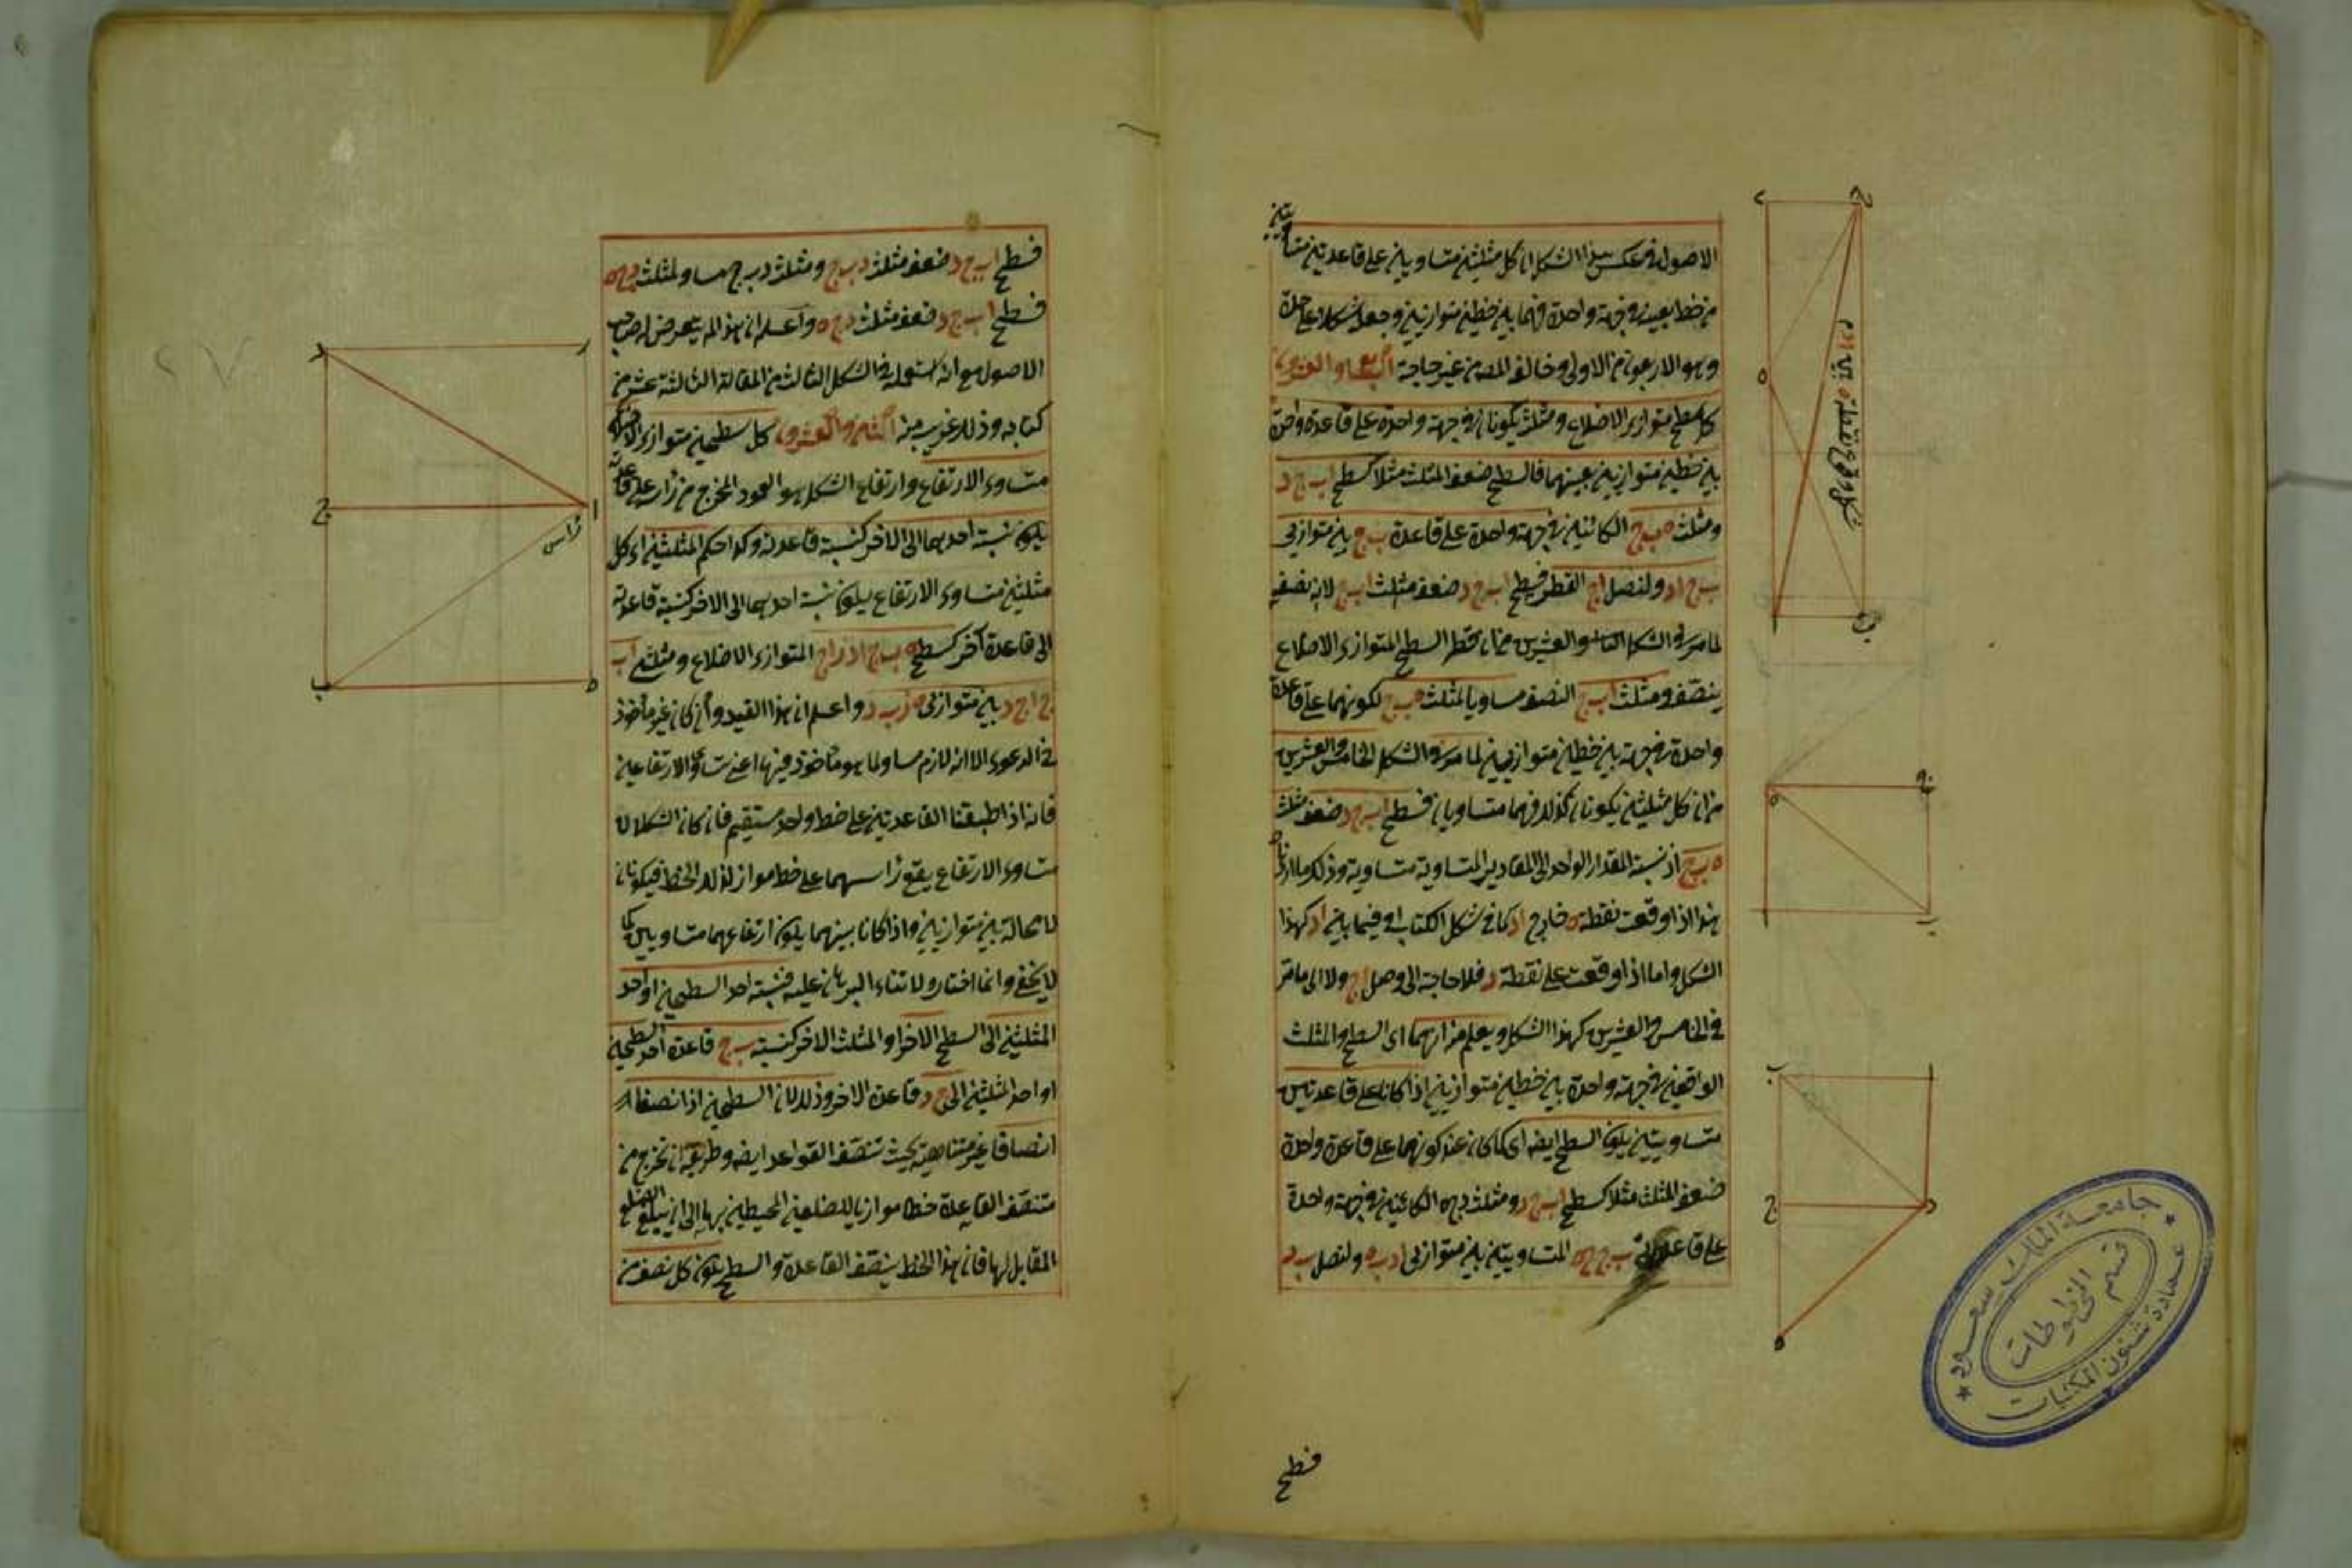 الاصول في عكس هذا الشكل ان كل مثلثين متساويين على قاعدتين متساويتين
من خط بعينه في جهة واحدة فهما بين خطين متوازيين وجعله شكلا على حدة
وهو الاربعون من الاولى وخالفه المصـ من غير حاجة السابع والعشرون
كل سطح متوازى الاضلاع ومثلث يكونان في جهة واحدة على قاعدة واحدة
بين خطين متوازيين بعينهما فالسطح ضعف المثلث مثلا كسطح ا ب ج د
ومثلث ه ب ج الكائنين في جهة واحدة على قاعدة ب ج بين متوازيى
ب ج ا د ولنصل ا ج القطر فسطح ا ب ج د ضعف مثلث ا ب ج لانه نصفه
لما مر في الشكل والعشرين من ان قطر السطح المتوازى الاضلاع
ينصفه ومثلث ا ب ج النصف مساو يا لمثلث ه ب ج لكونهما على قاعدة
واحدة في جهة بين خطين متوازيين لما مر في الشكل الخامس والعشرين
من ان كل مثلثين يكونان كذلك فهما متساويان فسطح ا ب ج د ضعف مثلث
ه ب ج اذ نسبة المقدار الواحد الى المقادير المتساوية متساوية وذلك ما اردناه
هذا اذا وقعت نقطة ه خارج ا د كما في شكل الكتاب او فيما بين ا د كهذا
الشكل واما اذا وقعت على نقطة د فلا حاجة الى وصل ا ج ولا الى ما مر
في الخامس والعشرين كهذا الشكل ويعلم من انهما اى السطح والمثلث
الواقعين في جهة واحدة بين خطين متوازيين اذا كانا على قاعدتين
متساويتين يكون السطح ايضا اى كما كان عند كونهما على قاعدة واحدة
ضعف المثلث مثلا كسطح ا ب ج د ومثلث د ج ه الكائنين في جهة واحدة
على قاعدتى ب ج ج ه المتساويتين بين متوازيى ا د ب ه ولنصل ب د
فسطح
فسطح ا ب ج د ضعف مثلث د ب ج ومثلث د ب ج مساو لمثلث د ج ه
فسطح ا ب ج د ضعف مثلث د ج ه واعلم ان هذا لم يتعرض له صاحب
الاصول مع انه استعمله في الشكل الثالث من المقالة الثالثة عشر من
كتابه وذلك غريب منه الثامن والعشرون كل سطحين متوازى الاضلاع
متساوى الارتفاع وارتفاع الشكل هو العمود المخرج من رأسه على قاعدته
يكون نسبة احدهما الى الاخر كنسبة قاعدته وكذا حكم المثلثين اى كل
مثلثين متساوى الارتفاع يكون نسبة احدهما الى الاخر كنسبة قاعدته
الى قاعدة آخر كسطحى ه ب ج ا د ر ا ج المتوازى الاضلاع ومثلثى ا ب
ج ا ج د بين متوازيى ه ر ب د واعلم ان هذا القيد وان كان غير مأخوذ
في الدعوى الا انه لازم مساو لما هو مأخوذ فيها اعنى تساوى الارتفاعين
فانه اذا طبقنا القاعدتين على خط واحد مستقيم فان كان الشكلان
متساوى الارتفاع يقع رأسهما على خط مواز لذلك الخط فيكونان
لا محالة بين متوازيين واذا كانا بينهما يكون ارتفاعهما متساويين كما
لا يخفى وانما اختاره لابتناء البرهان عليه فنسبة احد السطحين او احد
المثلثين الى السطح الاخر او المثلث الاخر كنسبة ب ج قاعدة احد السطحين
او احد المثلثين الى ج د قاعدة الاخر وذلك لان السطحين اذا نصفا
انصافا غير متناهية بحيث تنصف القواعد ايضا وطريقه ان نخرج من
منتصف القاعدة خطا موازيا للضلعين المحيطين بها الى ان يبلغ الضلع
المقابل لها فان هذا الخط ينصف القاعدة والسطح يكون كل نصف من
رأس
جامعة الملك سعود
قسم المخطوطات
عمادة شئون المكتبات